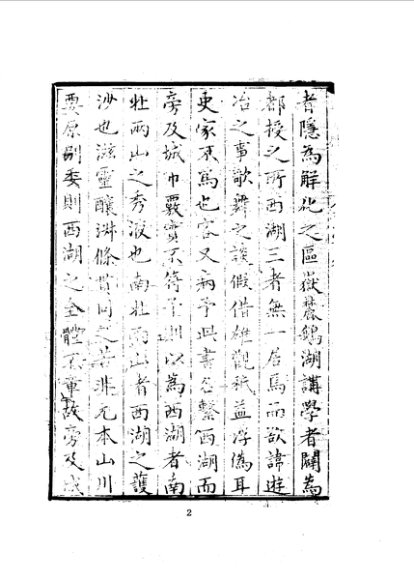 者隱為解化之區嶽麓鵝湖講學者闢為
都授之所西湖三者無一居焉而欲諱遊
冶之事歌舞之談假借雄觀秖益浮偽耳
史家不為也客又病予此書名繫西湖而
旁及城市覈實不符予則以為西湖者南
北兩山之秀液也南北兩山者西湖之護
沙也滋靈釀淋條貫同之若非元本山川
要原別委則西湖之全體不章故旁及城
2